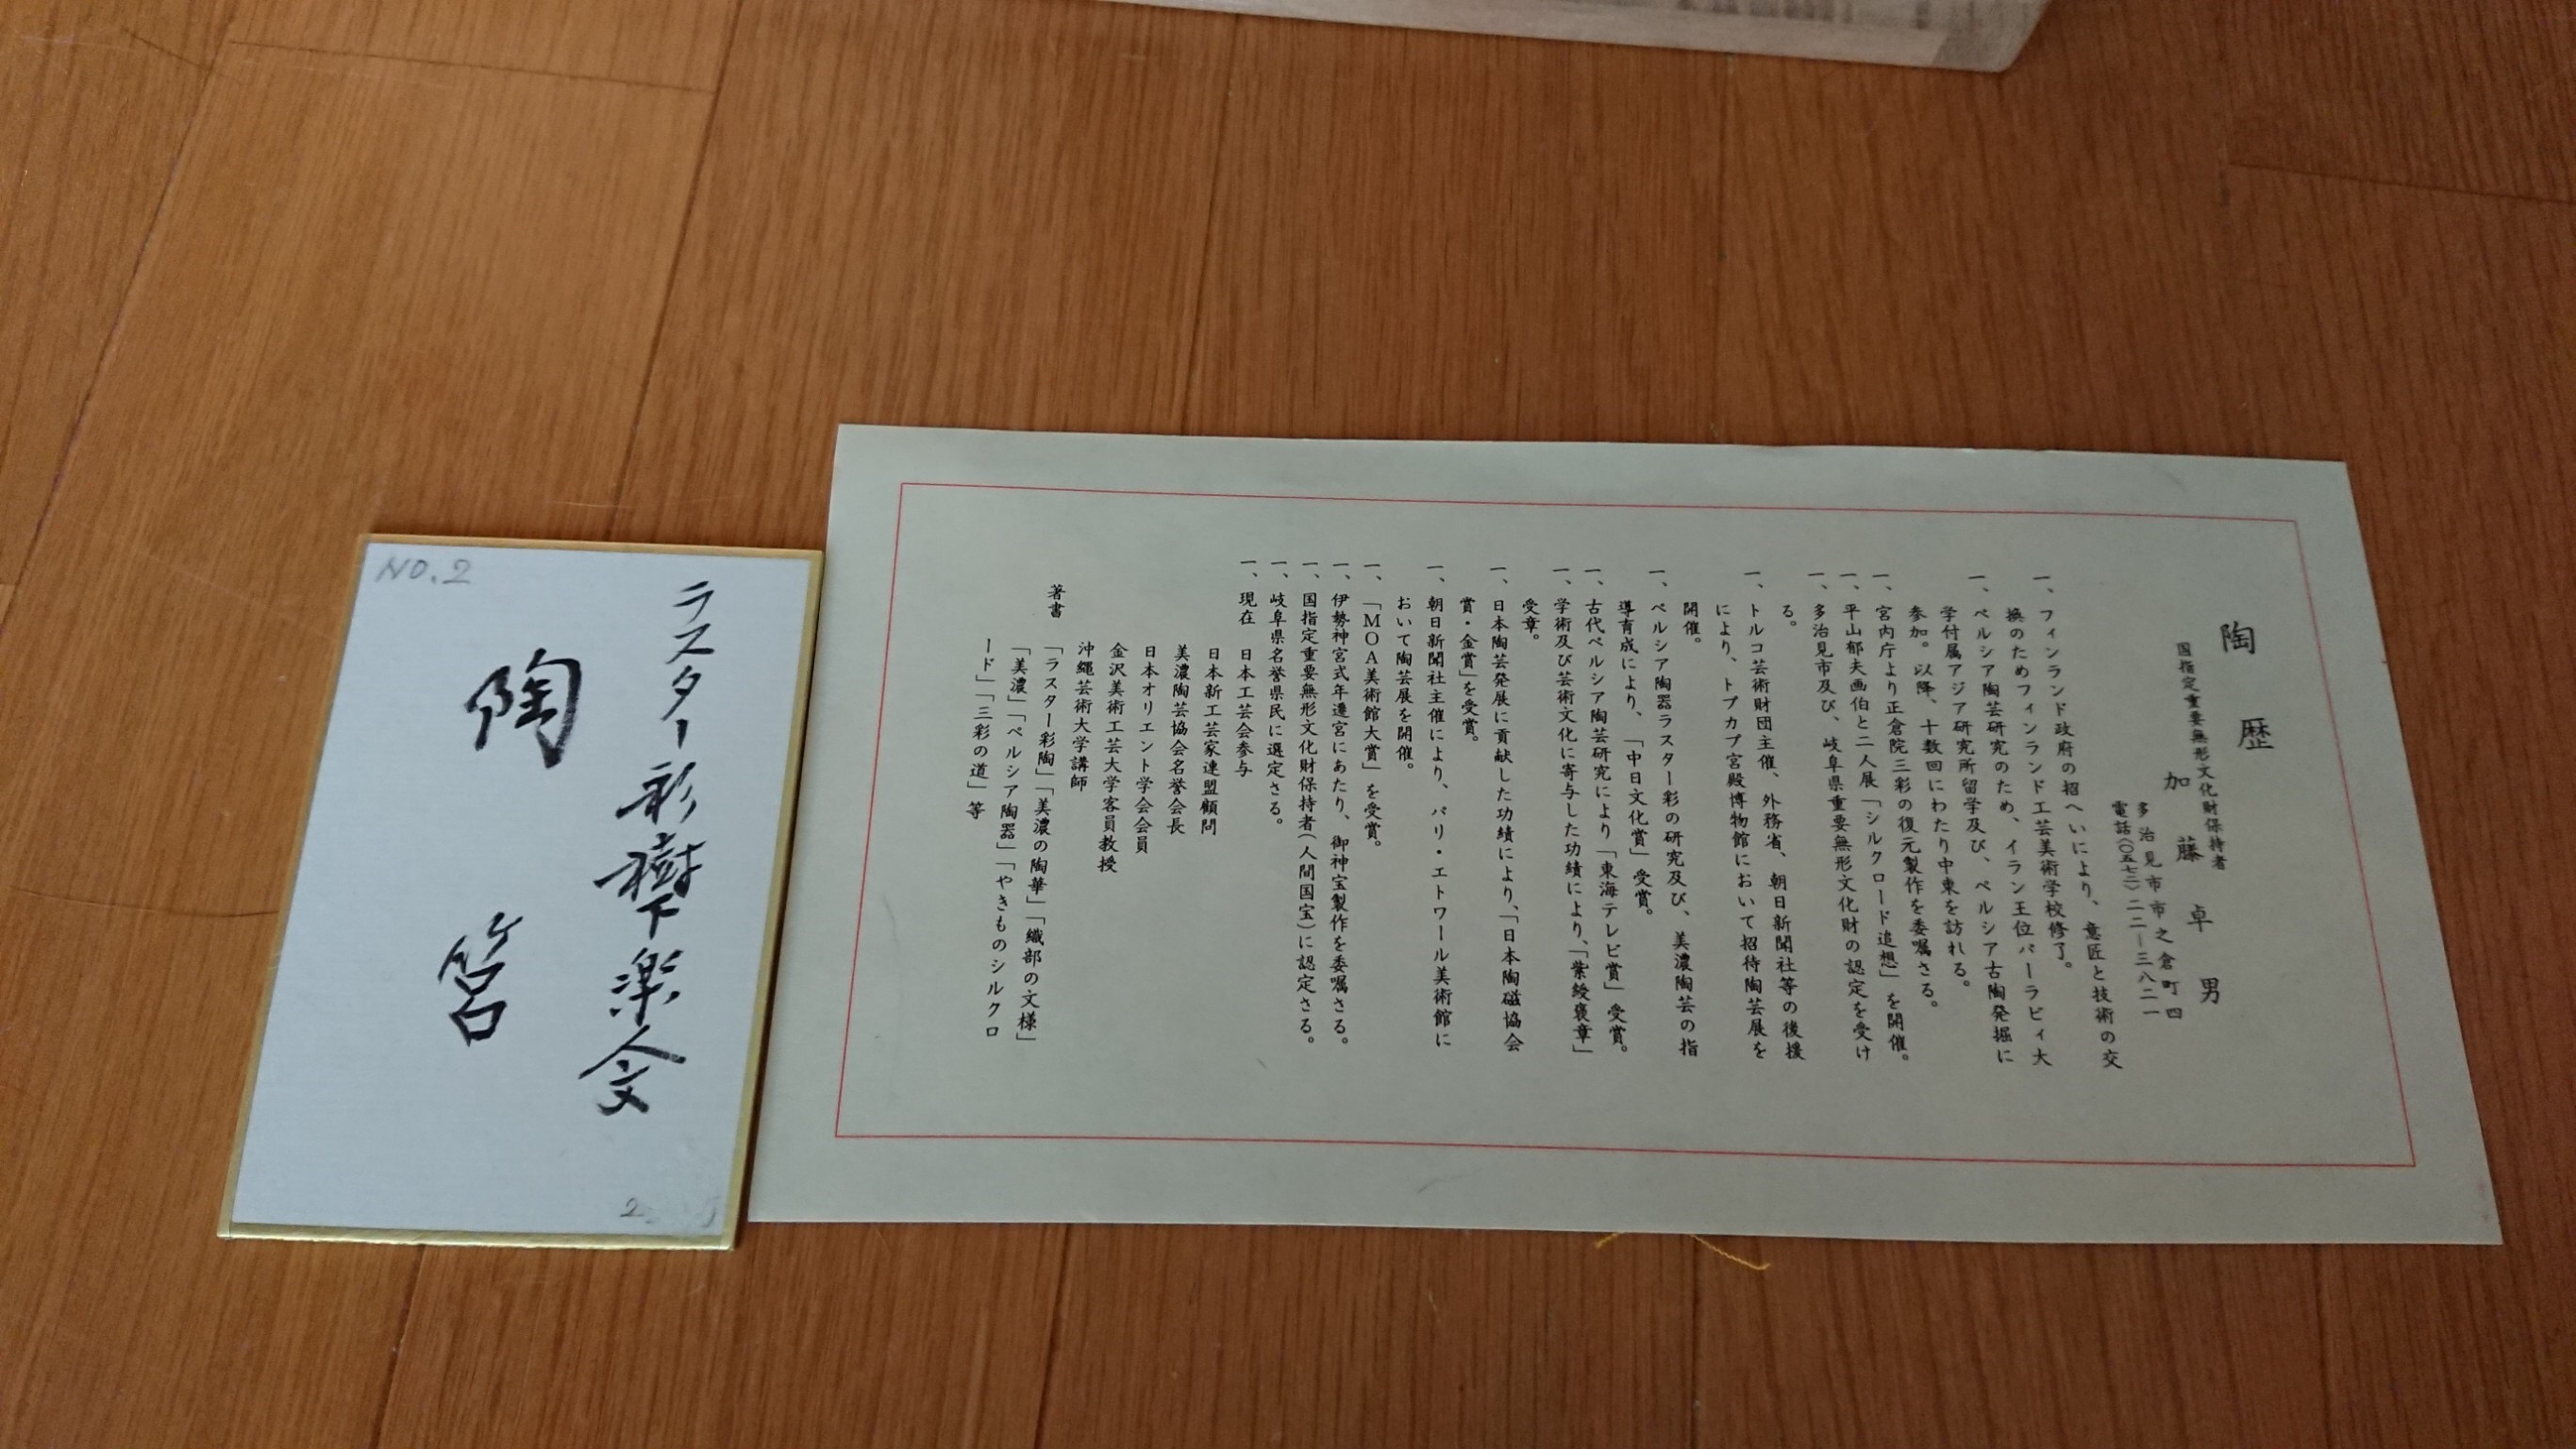 陶歴
国指定重要無形文化財保持者
加藤卓男
多治見市市之倉町四
電話(〇五七二)二二―三八二一
一、フィンランド政府の招へいにより、意匠と技術の交
換のためフィンランド工芸美術学校修了。
一、ペルシア陶芸研究のため、イラン王位パーラビィ大
学付属アジア研究所留学及び、ペルシア古陶発掘に
参加。以降、十数回にわたり中東を訪れる。
一、宮内庁より正倉院三彩の復元製作を委嘱さる。
一、平山郁夫画伯と二人展「シルクロード追想」を開催。
一、多治見市及び、岐阜県重要無形文化財の認定を受け
る。
一、トルコ芸術財団主催、外務省、朝日新聞社等の後援
により、トプカプ宮殿博物館において招待陶芸展を
開催。
一、ペルシア陶器ラスター彩の研究及び、美濃陶芸の指
導育成により、「中日文化賞」受賞。
一、古代ペルシア陶芸研究により「東海テレビ賞」受賞。
一、学術及び芸術文化に寄与した功績により、「紫綬褒章」
受章。
一、日本陶芸発展に貢献した功績により、「日本陶磁協会
賞・金賞」を受賞。
一、朝日新聞社主催により、パリ・エトワール美術館に
おいて陶芸展を開催。
一、「MOA美術館大賞」を受賞。
一、伊勢神宮式年遷宮にあたり、御神宝製作を委嘱さる。
一、国指定重要無形文化財保持者(人間国宝)に認定さる。
一、岐阜県名誉県民に選定さる。
一、現在 日本工芸会参与
日本新工芸家連盟顧問
美濃陶芸協会名誉会長
日本オリエント学会会員
金沢美術工芸大学客員教授
沖縄芸術大学講師
著書 「ラスター彩陶」「美濃の陶華」「織部の文様」
「美濃」「ペルシア陶器」「やきものシルクロ
ード」「三彩の道」等
NO.2
ラスター彩樹下楽人文
陶筥